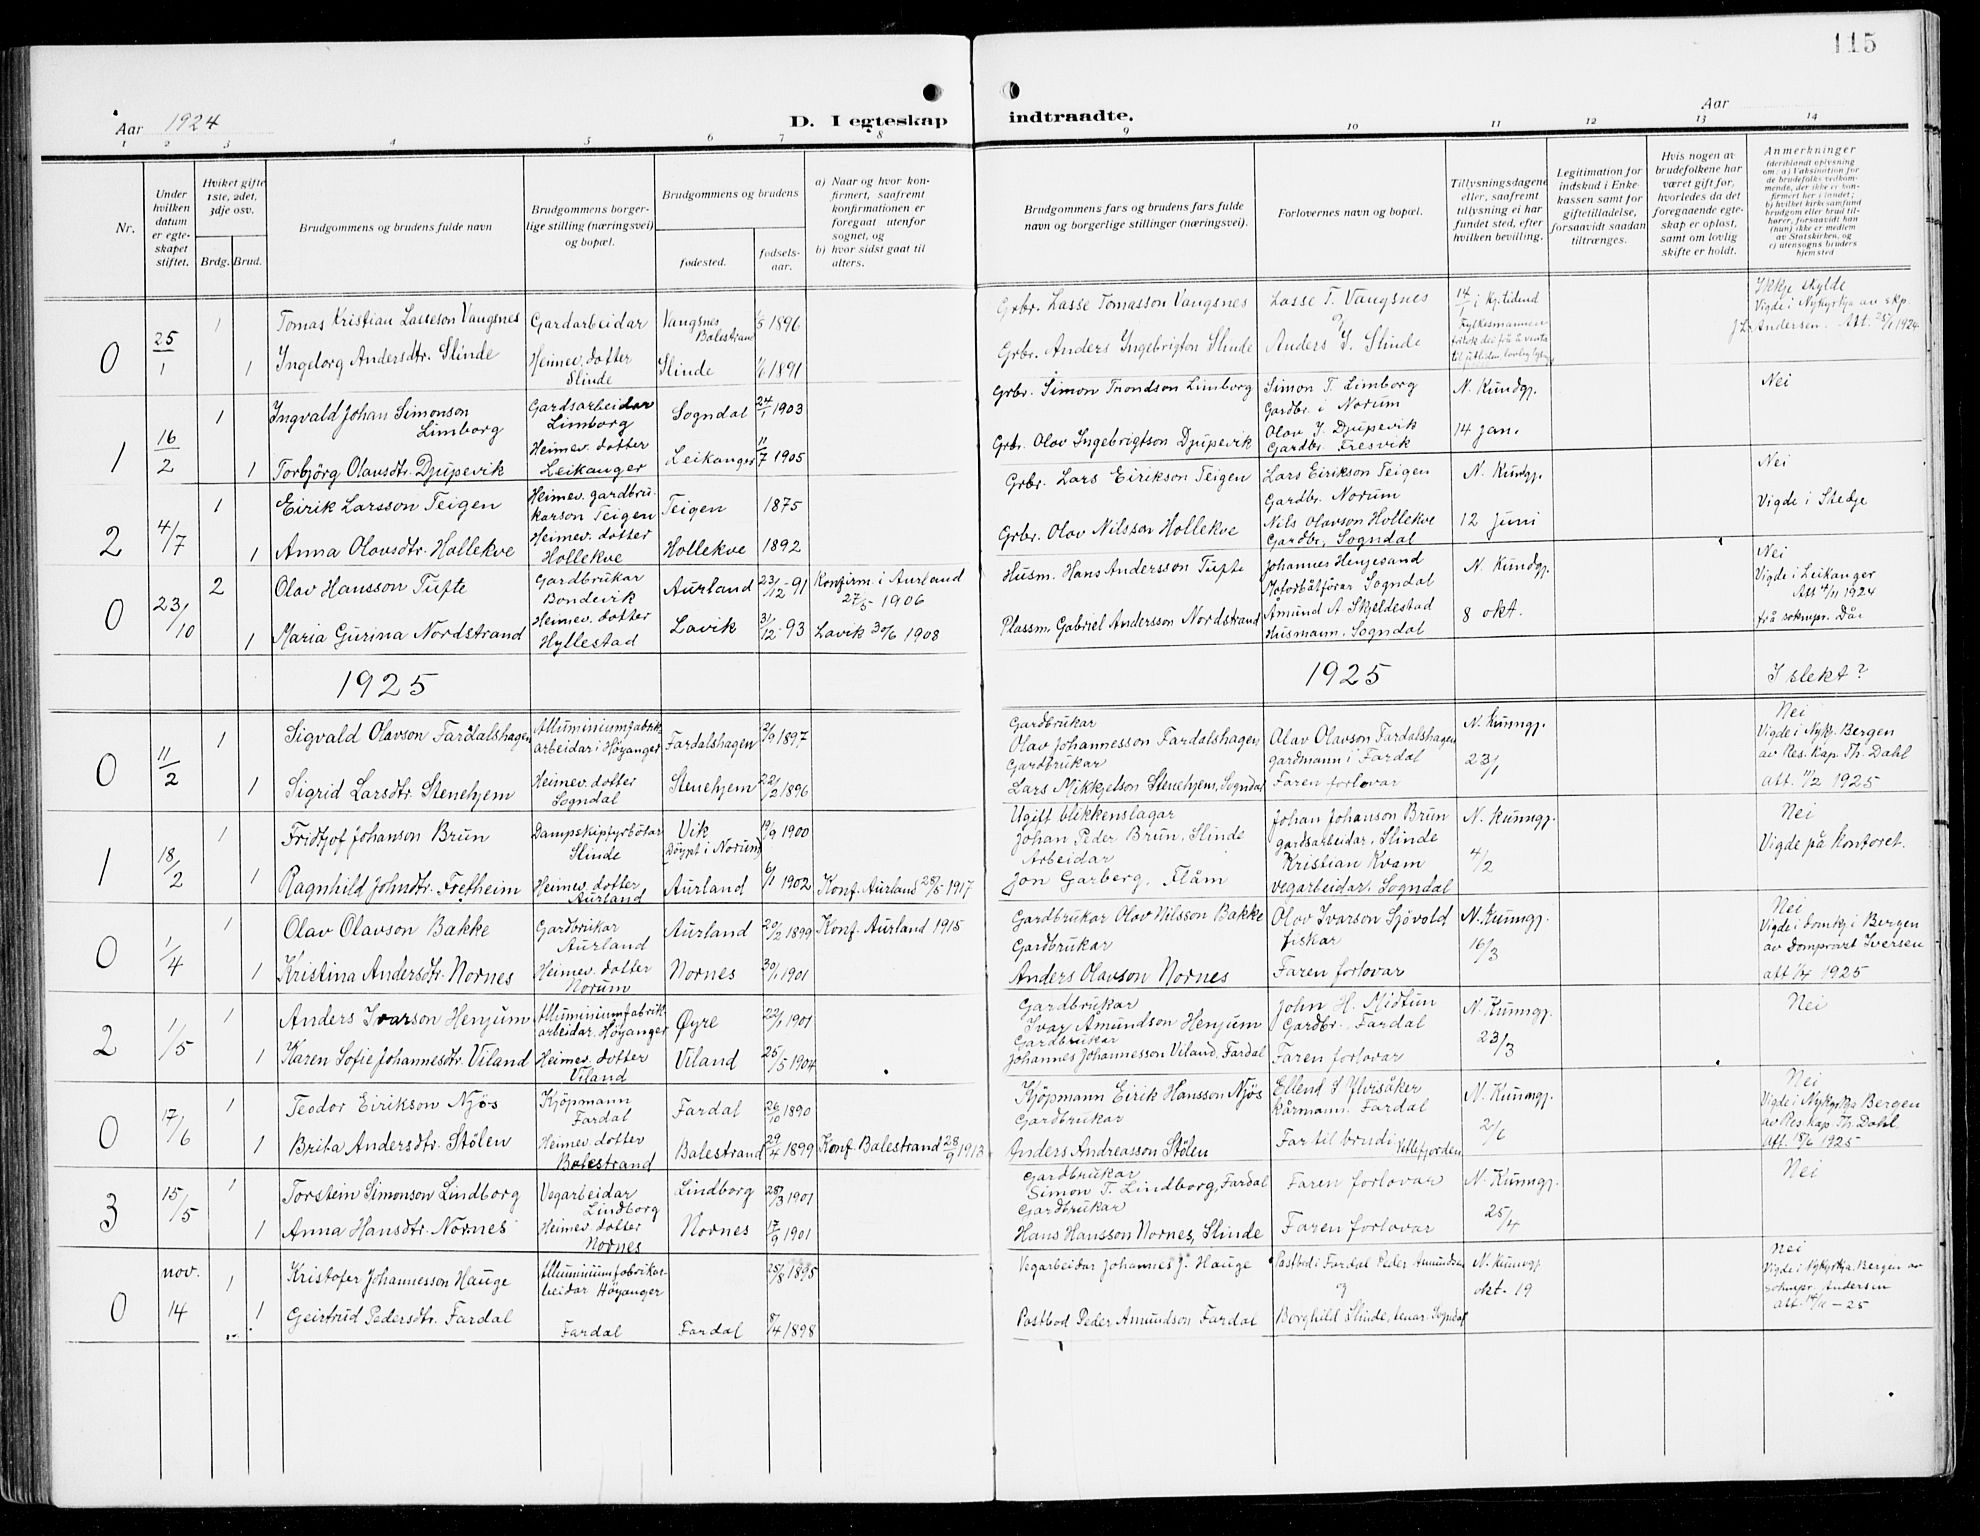 115
Aar 1924
D. I egteskap indtraadte.
Aar
1 2 3 4 5 6 7 8 9 10 11 12 13 14
Nr.
Under hvilken datum er egteskapet stiftet.
Hvilket gifte 1ste, 2det, 3dje osv.
Brdg. Brud.
Brudgommens og brudens fulde navn
Brudgommens borgerlige stilling (næringsvei) og bopæl.
Brudgommens og brudens
fødested.
fødselsaar.
a) Naar og hvor konfirmert, saafremt konfirmationen er foregaat utenfor sognet, og
b) hvor sidst gaat til alters.
Brudgommens fars og brudens fars fulde navn og borgerlige stillinger (næringsvei).
Forlovernes navn og bopæl.
Tillysningsdagene eller, saafremt tillysning ei har fundet sted, efter hvilken bevilling.
Legitimation for indskud i Enkekassen samt for giftetilladelse, forsaavidt saadan tiltrænges.
Hvis nogen av brudefolkene har været gift før, hvorledes da det foregaaende egteskap er opløst, samt om lovlig skifte er holdt.
Anmerkninger
(deriblandt oplysning om: a) Vaksination for de brudefolks vedkommende, der ikke er konfirmert her i landet; b) hvilket kirkesamfund brudgom eller brud tilhører, forsaavidt han (hun) ikke er medlem av Statskirken, og c) utensogns bruders hjemsted
0 25/1 1 Tomas Kristian Lasseson Vangsnes Gardarbeidar Vangsnes Balestrand 1/5 1896 Grbr. Lasse Tomasson Vangsnes Lasse T. Vangsnes 14/1 i Kg.tidend Ikkje skylde
og Fylkesmannen Vigde i Nykyrkja av skp.
1 Ingeborg Andersdtr. Slinde Heimev. dotter Slinde Slinde 1/6 1891 Grbr. Anders Ingebrigtson Slinde Anders I. Slinde Andersen. Att. 25/1 1924
1 16/2 1 Ingvald Johan Simonson Limborg Gardsarbeidar Limborg Sogndal 24/1 1903 Grbr. Simon Trondson Limborg Simon T. Limborg Gardbr. i Norum N. Kundgj. Nei
1 Torbjörg Olavsdtr. Djupevik Heimev. dotter Leikanger Leikanger 11/7 1905 Grbr. Olav Ingebrigtson Djupevik Olav I. Djupevik Gardbr. Fresvik 14 jan.
2 4/7 1 Eirik Larsson Teigen Heimev. gardbrukarson Teigen Teigen 1875 Grbr. Lars Eirikson Teigen Lars Eirikson Teigen Gardbr. Norum N. Kundgj. Nei
1 Anna Olavsdtr. Hollekve Heimev. dotter Hollekve Hollekve 1892 Grbr. Olav Nilsson Hollekve Nils Olavson Hollekve Gardbr. Sogndal 12 juni Vigde i Stedje
0 23/10 2 Olav Hansson Tufte Gardbrukar Bondevik Aurland 23/12-91 Konfirm. i Aurland 27/5-1906 Husm. Hans Andersson Tufte Johannes Henjesand Motorbåtförar Sogndal N. Kundgj. Nei
Vigde i Leikanger Att 4/11 1924
1 Maria Gurina Nordstrand Heimev. dotter Hyllestad Lavik 31/12-93 Lavik 30/6 1908 Plassm. Gabriel Andersson Nordstrand Åmund A Skjeldestad Husmann. Sogndal 8 okt. frå soknepr. Dår
1925 1925 I slekt?
0 11/2 1 Sigvald Olavson Fardalshagen Alluminiumfabrikarbeidar i Höyanger Fardalshagen 2/9 1897 Gardbrukar Olav Johannesson Fardalshagen Olav Olavson Fardalshagen gardmann i Fardal N. Kunngj. 23/1 Nei
Vigde i Nyk. Bergen av Res. kap. Th. Dahl
1 Sigrid Larsdtr. Stenehjem Heimev. dotter Sogndal Stenehjem 22/2 1896 Gardbrukar Lars Mikkjelson Stenehjem, Sogndal Faren forlovar att. 11/2 1925
1 18/2 1 Fridtjof Johanson Brun Dampskipfyrbötar Slinde Vik Döypt i Norum 19/9 1900 Ugift blikkenslagar Johan Peder Brun, Slinde Johan Johanson Brun gardsarbeidar, Slinde N. Kunngj. 4/2 Nei
Vigde på kontoret.
1 Ragnhild Johndtr. Fretheim Heimev. dotter Aurland Aurland 6/1 1902 Konf. Aurland 28/5 1917 Arbeidar Jon Garberg, Flåm Kristian Kvam vegarbeidar, Sogndal
0 1/4 1 Olav Olavson Bakke Gardbrukar Aurland Aurland 20/2 1899 Konf. Aurland 1915 Gardbrukar Olav Nilsson Bakke Olav Ivarson Sjövold fiskar N. Kunngj. 16/3 Nei
Vigde i Domskj i Bergen av Domprost Iversen
1 Kristina Andersdtr. Nornes Heimev. dotter Norum Nornes 30/1 1901 Gardbrukar Anders Olavson Nornes Faren forlovar att 1/4 1925
2 1/5 1 Anders Ivarson Henjum Alluminiumfabrikarbeidar. Höyanger Øyre 22/1 1901 Gardbrukar Ivar Åmundson Henjum John H. Midtun Gardbr., Fardal N. Kunngj. 23/3 Nei
1 Karen Sofie Johannesdtr. Viland Heimev. dotter Viland Viland 25/5 1904 Gardbrukar Johannes Johannesson Viland, Fardal Faren forlovar
0 17/6 1 Teodor Eirikson Njøs Kjöpmann Fardal Fardal 26/10 1890 Kjöpmann Eirik Hansson Njös Ellend I Yvrsåker kårmann. Fardal N. Kunngj. 2/6 Nei
Vigde i Nykyrkja Bergen av Res. kap Th. Dahl.
1 Brita Andersdtr. Stölen Heimev. dotter Balestrand Balestrand 29/4 1899 Konf. Balestrand 28/9 1913 Gardbrukar Anders Andreasson Stölen Far til brudi Vetlefjorden Att. 18/6 1925
3 15/5 1 Torstein Simonson Lindborg Vegarbeidar Lindborg Lindborg 28/3 1901 Gardbrukar Simon T. Lindborg, Fardal Faren forlovar N. Kunngj. 25/4 Nei
1 Anna Hansdtr. Nornes Heimev. dotter Nornes Nornes 17/9 1901 Gardbrukar Hans Hansson Nornes, Slinde Faren forlovar
0 nov. 14 1 Kristofer Johannesson Hauge Alluminiumfabrikarbeidar Höyanger 25/8 1895 Vegarbeidar Johannes J. Hauge Postbod i Fardal Peder Amundsen og N. Kunngj okt. 19 Nei
Vigde i Nykyrkja. Bergen av soknepr. Andersen
1 Geirtrud Pedersdtr. Fardal Fardal Fardal 8/4 1898 Postbod Peder Amundson Fardal Borghild Slinde, lenar. Sogndal att. 14/11-25